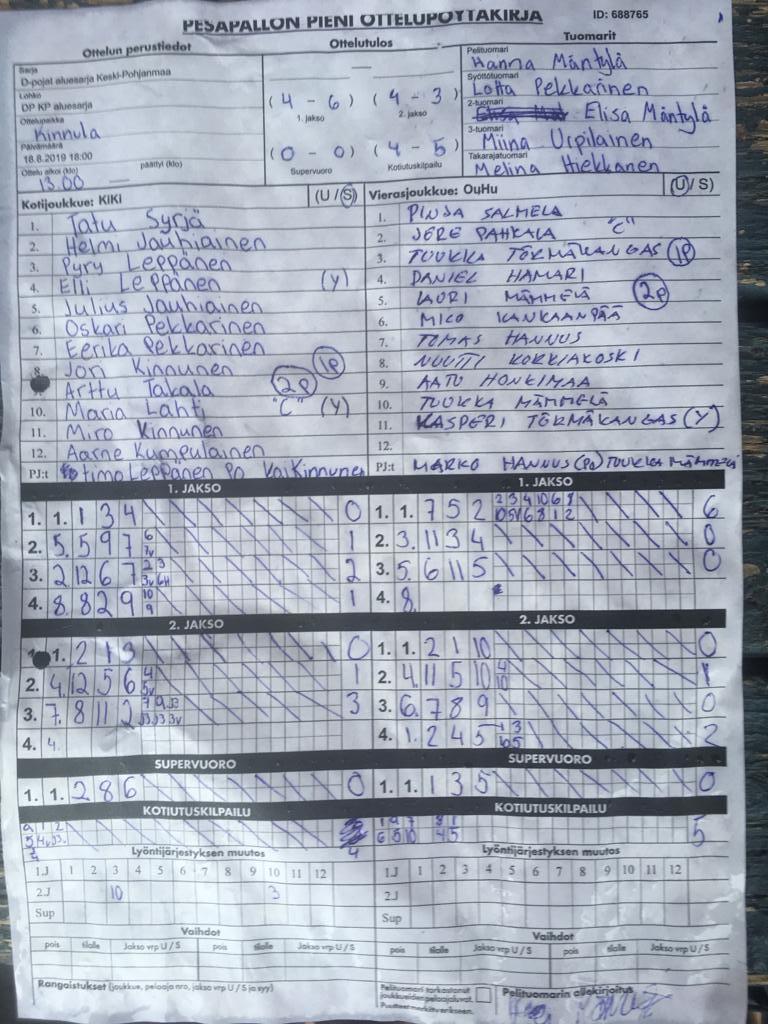 PESÄPALLON PIENI OTTELUPÖYTÄKIRJA ID: 688765
Ottelun perustiedot
Sarja
D-pojat aluesarja Keski-Pohjanmaa
Lohko
DP KP aluesarja
Ottelupaikka
Kinnula
Päivämäärä
18.8.2019 18:00
Ottelu alkoi (klo) päättyi (klo)
13.00
Ottelutulos
(4 - 6) (4 - 3)
1. jakso 2. jakso
(0 - 0) (4 - 5)
Supervuoro Kotiutuskilpailu
Tuomarit
Pelituomari
Hanna Mäntylä
Syöttötuomari
Lotta Pekkarinen
2-tuomari
Elisa Mäntylä
3-tuomari
Miina Urpilainen
Takarajatuomari
Melina Hiekkanen
Kotijoukkue: KiKi (U / S)
1. Tatu Syrjä
2. Helmi Jauhiainen
3. Pyry Leppänen
4. Elli Leppänen (Y)
5. Julius Jauhiainen
6. Oskari Pekkarinen
7. Eerika Pekkarinen
8. Jori Kinnunen 1P
Arttu Takala 2P
10. Maria Lahti "C" (Y)
11. Miro Kinnunen
12. Aarne Kumpulainen
PJ:t Timo Leppänen Po Vai Kinnunen
Vierasjoukkue: OuHu (U / S)
1. PINJA SALMELA
2. JERE PAHKALA "C"
3. TUUKKA TÖRMÄKANGAS 1P
4. DANIEL HAMARI
5. LAURI MÄMMELÄ 2P
6. MICO KANKAANPÄÄ
7. TOMAS HANNUS
8. NUUTTI KORKIAKOSKI
9. AATU HONKIMAA
10. TUUKKA MÄMMELÄ
11. KASPERI TÖRMÄKANGAS (Y)
12.
PJ:t MARKO HANNUS (PO) TUUKKA MÄMMELÄ
1. JAKSO
1. 1. 1 3 4 0
2. 5. 5 9 7 1
3. 2 12 6 7 2
4. 8. 8 2 9 10 9 1
1. JAKSO
1. 1. 7 5 2 6
2. 3. 11 3 4 0
3. 5. 6 11 5 0
4. 8.
2. JAKSO
1. 2 1 3 0
2. 4. 12 5 6 1
3. 7. 8 11 2 3
4. 4.
2. JAKSO
1. 1. 2 1 10 0
2. 4. 11 5 10 1
3. 6. 7 8 9 0
4. 1. 2 4 5 2
SUPERVUORO
1. 1. 2 8 6 0
SUPERVUORO
1. 1. 1 3 5 0
KOTIUTUSKILPAILU
4
KOTIUTUSKILPAILU
5
Lyöntijärjestyksen muutos
1.J 1 2 3 4 5 6 7 8 9 10 11 12
2.J 10 3
Sup
Lyöntijärjestyksen muutos
1.J 1 2 3 4 5 6 7 8 9 10 11 12
2.J
Sup
Vaihdot
pois tilalle Jakso vrp U / S pois tilalle Jakso vrp U / S
Vaihdot
pois tilalle Jakso vrp U / S pois tilalle Jakso vrp U / S
Rangaistukset (joukkue, pelaaja nro, jakso vrp U / S ja syy)
Pelituomari tarkastanut
joukkueiden pelaajaluvat.
Puutteet merkittävä erikseen.
Pelituomarin allekirjoitus